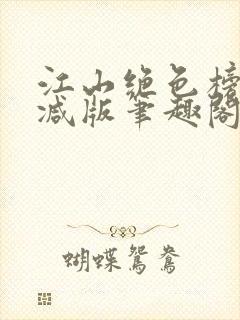 江山绝色榜
减版笔趣阁
蝴蝶鸳鸯